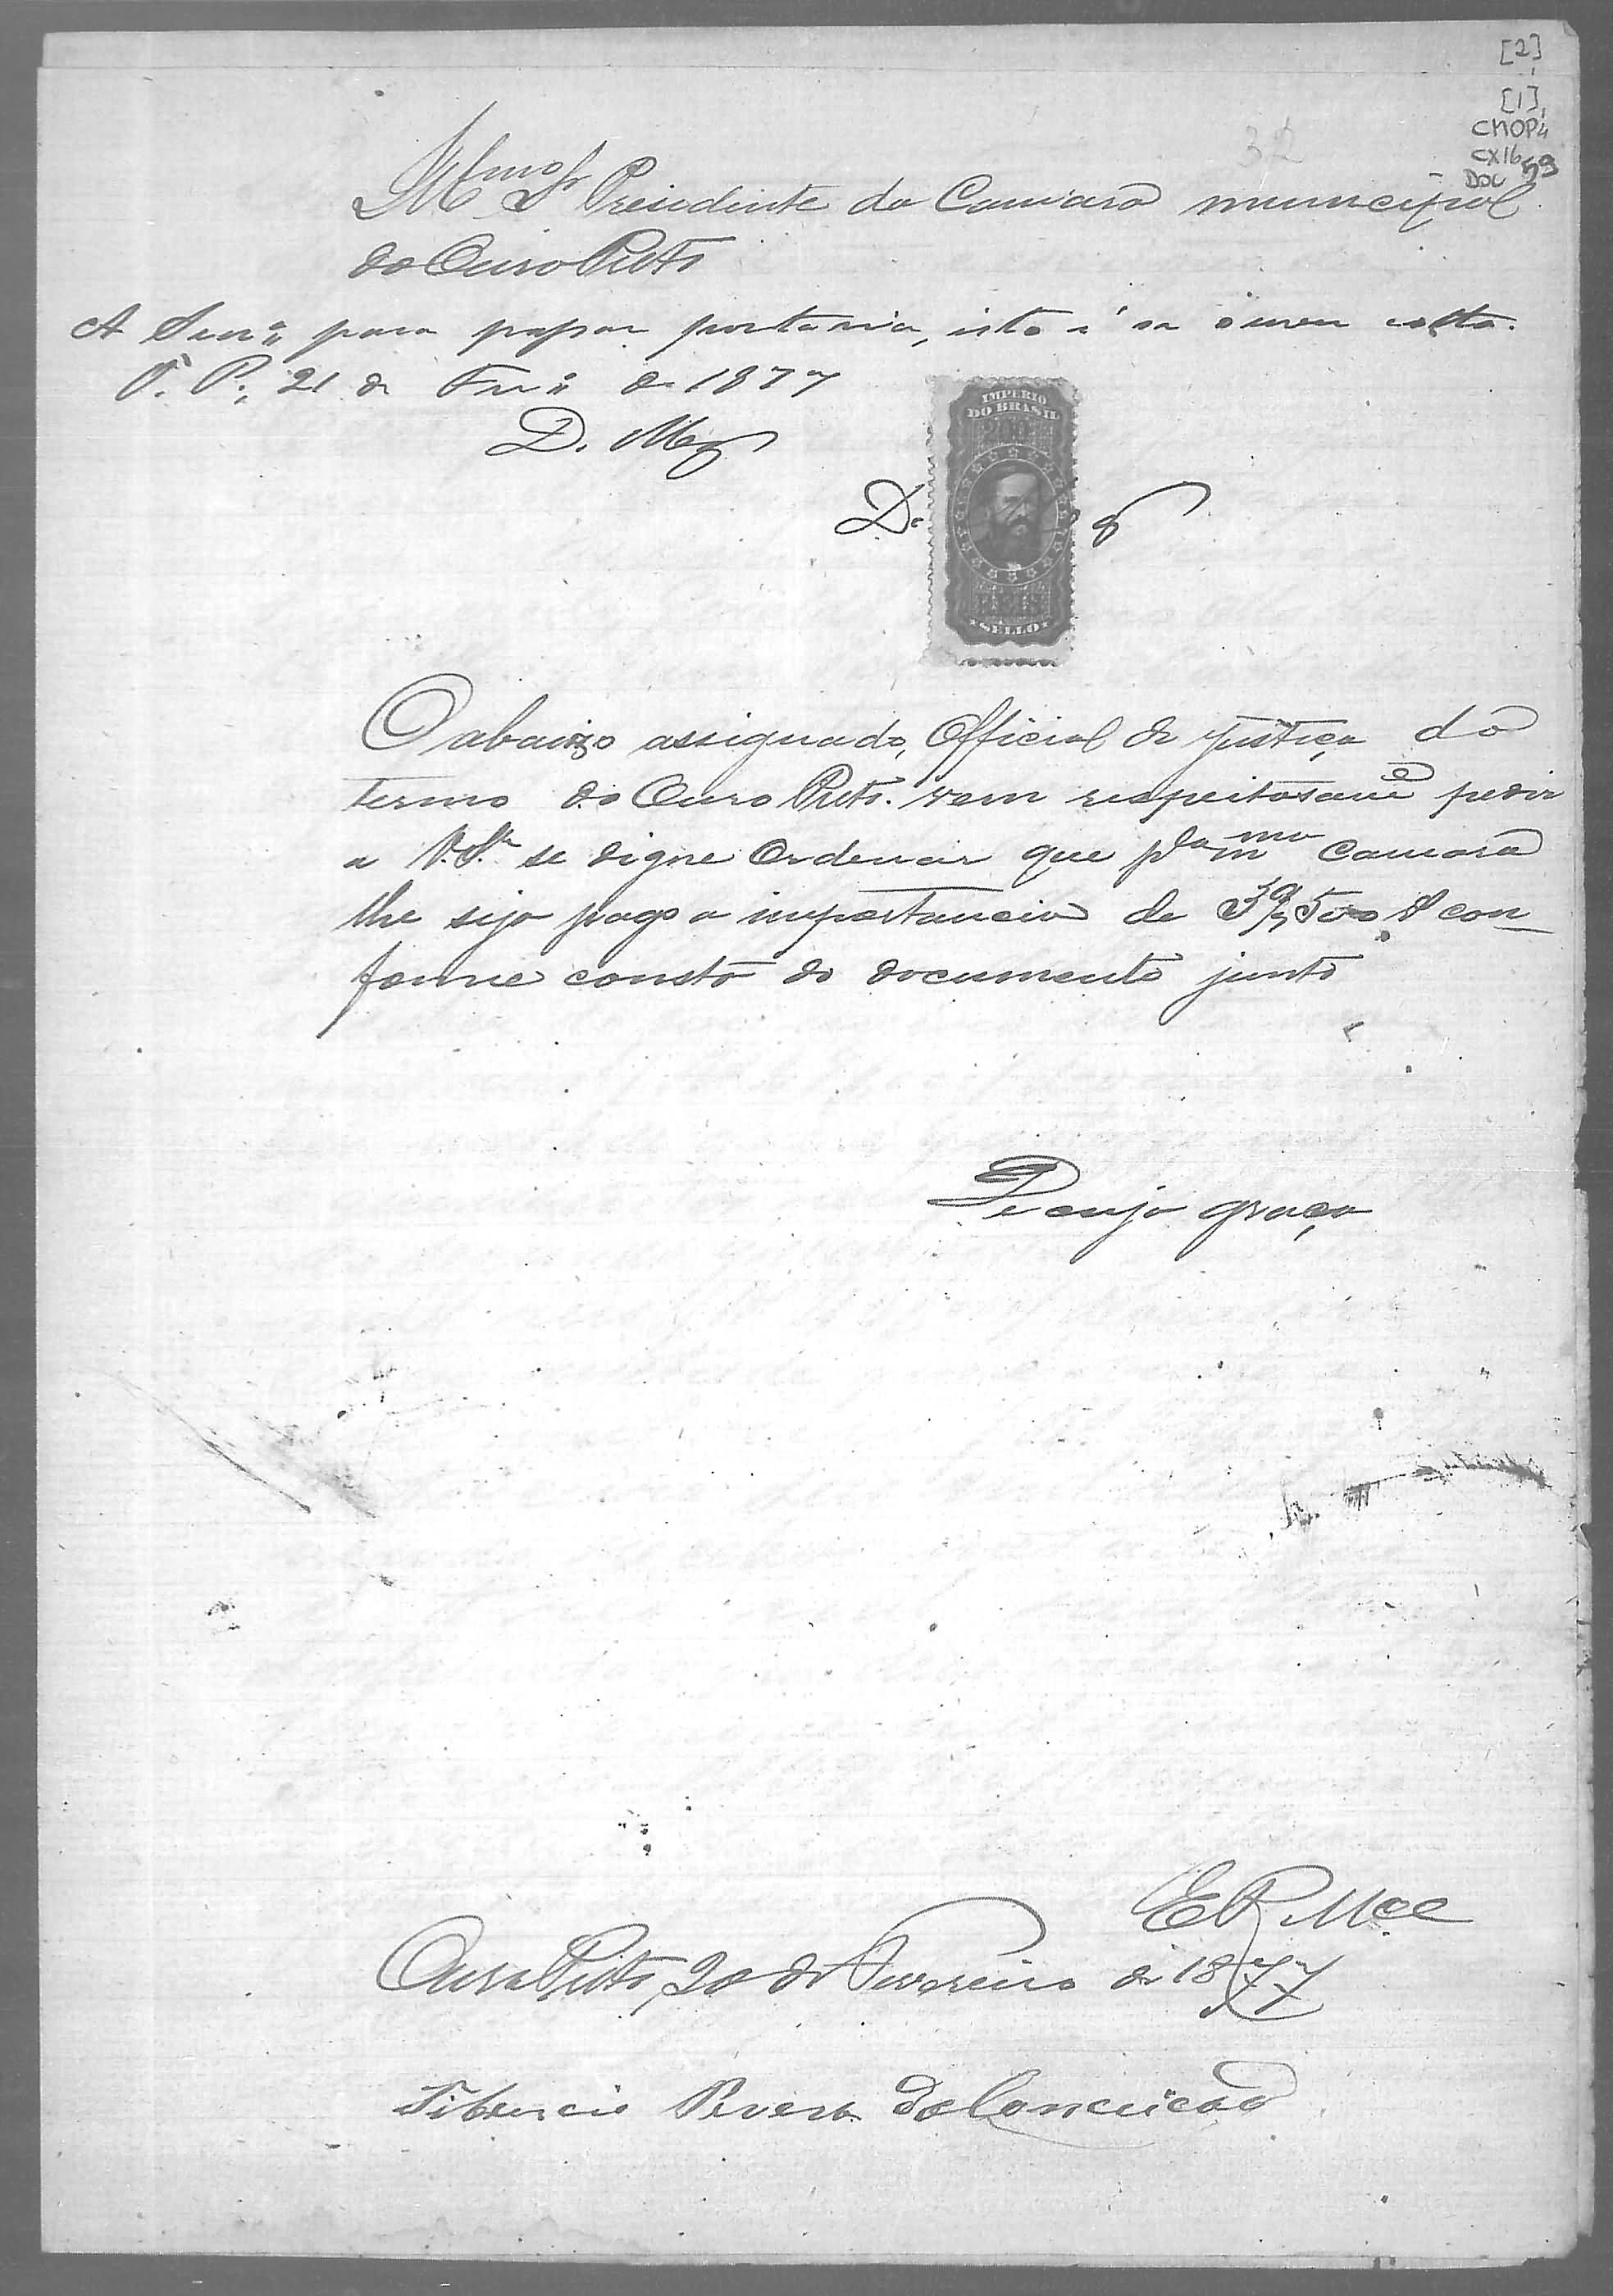 [2]
[1]
CMOP4
CX16
DOC 59
32
Illmo Sr Presidente da Camara municipal
do Ouro Preto
A Secr.ª para passar portaria, isto é da
O. P., 21 de Fev.º de 1877
D. Mg
IMPERIO
DO BRASIL
200
De
REIS
SELLO
O abaixo assignado, Official de Justiça do
termo do Ouro Preto. vem respeitosame pedir
a V. S.ª se digne Ordenar que pla mma Camara
lhe seja pago a importancia de 500 con
forme consta do documento junto
De cuja graça
E R Mce
Ouro Preto, 20 de Fevereiro de 1877
Tiburcio Pereira da Conceicão